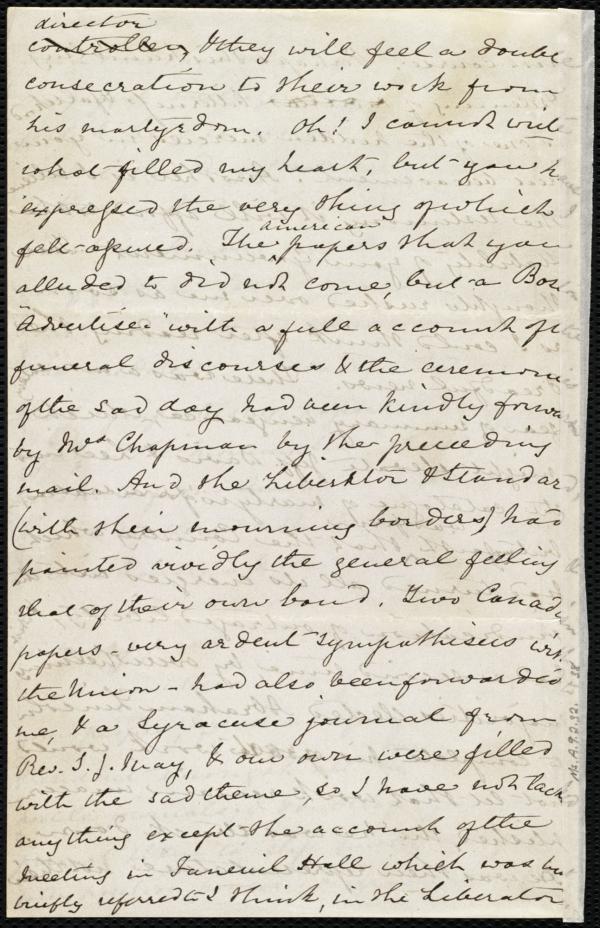 director
controller, & they will feel a double
consecration to their work from
his martyrdom. Oh! I cannot write
what filled my heart, but you have
expressed the very thing of which I
felt assured. The american papers that you
alluded to did not come, but a Bost
"Advertiser" with a full account of
funeral discourses & the ceremon
of the sad day had been kindly forw
by Mrs Chapman by the preceding
mail. And the Liberator & Standar
(with their mourning borders) had
painted vividly the general feeling
that of their own band. Two Canad
papers - very ardent sympathisers with
the Union - had also been forwarded
me, & a Syracuse journal from
Rev. S. J. May, & our own were filled
with the sad theme, so I have not lack
anything except the account of the
meeting in Faneuil Hall which was
briefly referred to I think, in the Liberator
Ms. A. 9. 2. 32. 58